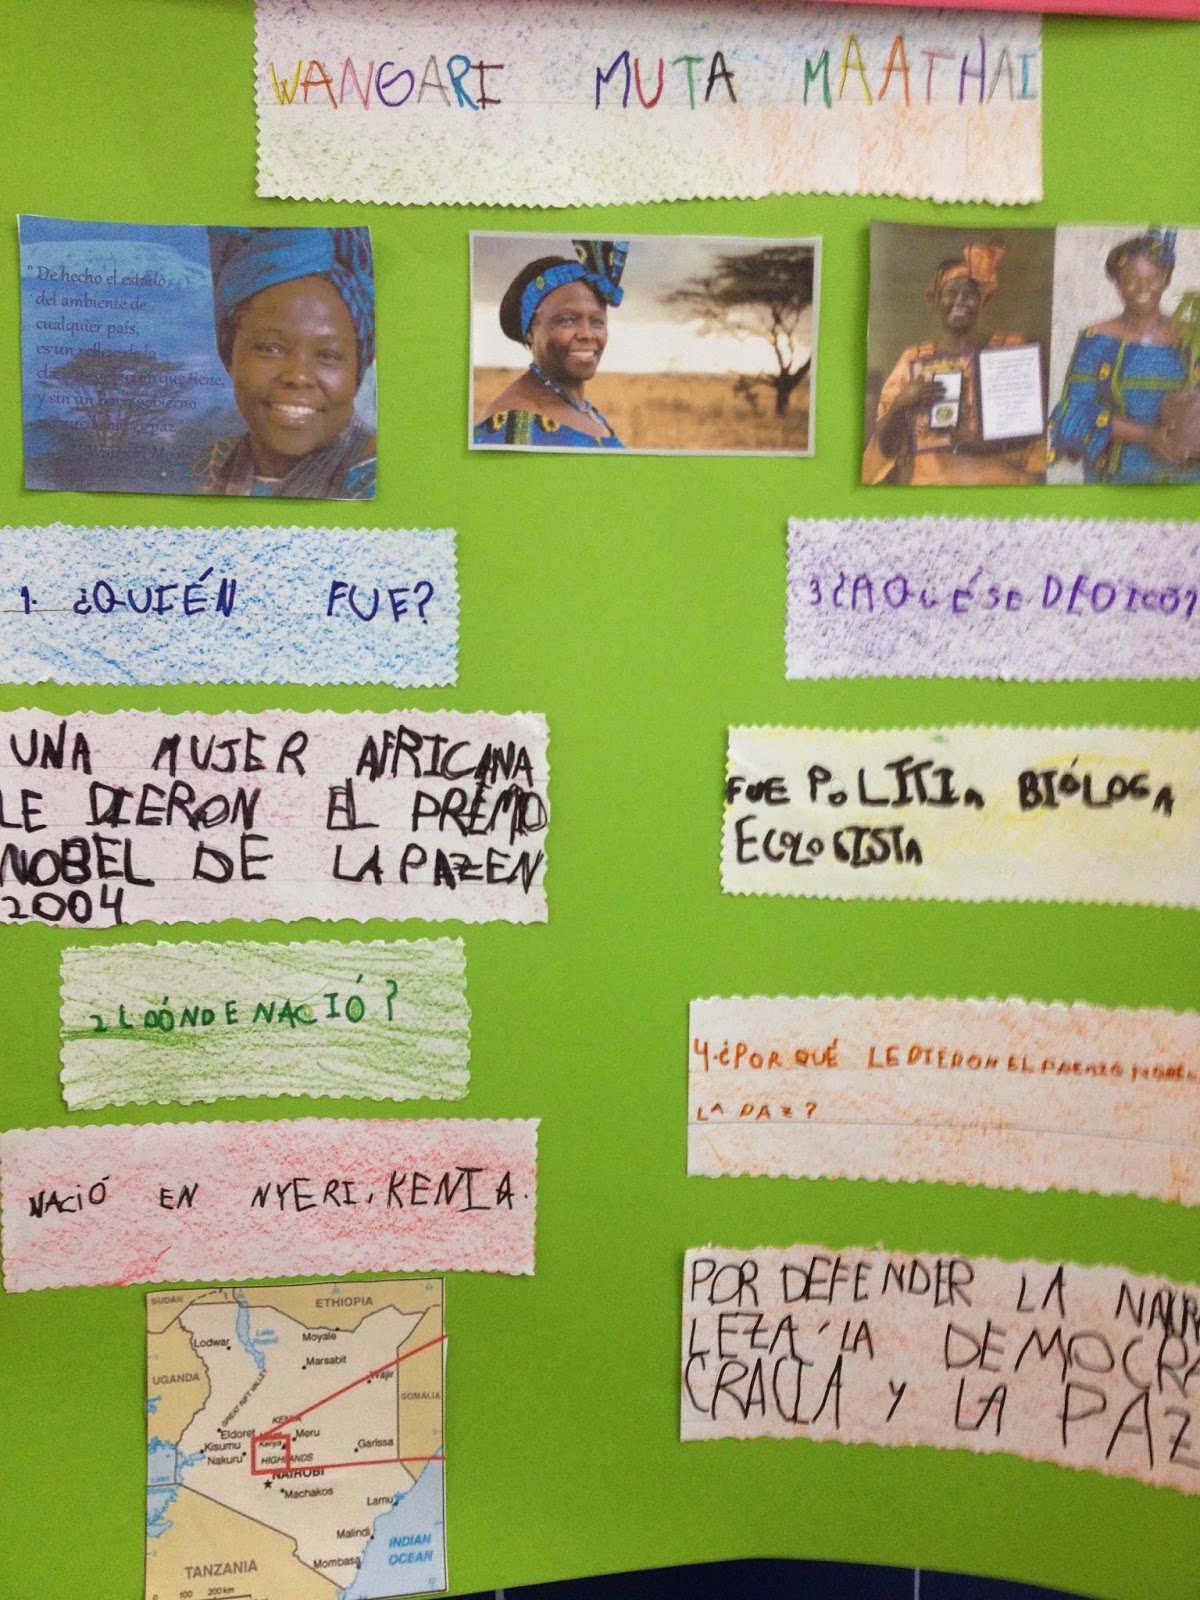 WANGARI MUTA MAATHAI
"De hecho el estado
del ambiente de
cualquier país,
es un
que tiene,
y sin un
1. ¿QUIÉN FUE?
UNA MUJER AFRICANA
LE DIERON EL PREMIO
NOBEL DE LA PAZ EN
2004
2 ¿DÓNDE NACIÓ?
NACIÓ EN NYERI, KENIA.
SUDAN
ETHIOPIA
Lodwar
Moyale
Marsabit
UGANDA
GREAT RIFT VALLEY
Wajir
SOMALIA
KENYA
Eldoret
Meru
Kisumu
Kenya
Garissa
Nakuru
HIGHLANDS
NAIROBI
Machakos
Lamu
Malindi
INDIAN
OCEAN
Mombasa
TANZANIA
100 200 km
3 ¿A QUÉ SE DEDICÓ?
FUE POLÍTIA BIÓLOGA
ECOLOGISTA
4. ¿POR QUÉ LE DIERON EL PREMIO
LA PAZ?
POR DEFENDER LA
LEZA, LA DEMOCRA
CRACIA Y LA PAZ